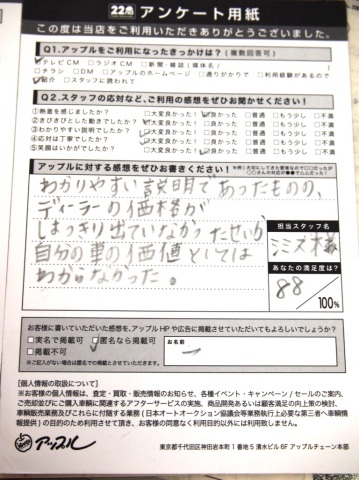 22周年 アンケート用紙
この度は当店をご利用いただきありがとうございました。
Q1.アップルをご利用になったきっかけは?(複数回答可)
☑テレビCM □ラジオCM □新聞・雑誌(媒体名/ )
□チラシ □DM □アップルのホームページ □通りがかりで □利用経験があるので
☑紹介 □スタッフに誘われて
Q2.スタッフの応対など、ご利用の感想をぜひお聞かせください!
①熱意を感じましたか? □大変良かった! ☑良かった □普通 □もう少し □不満
②きびきびとした動きでしたか? □大変良かった! ☑良かった □普通 □もう少し □不満
③わかりやすい説明でしたか? ☑大変良かった! □良かった □普通 □もう少し □不満
④応対は丁寧でしたか? ☑大変良かった! □良かった □普通 □もう少し □不満
⑤笑顔はいかがでしたか? ☑大変良かった! □良かった □普通 □もう少し □不満
アップルに対する感想をぜひお書きください!
わかりやすい説明であったものの、
ディーラーの価格が
はっきり出ていなかったせいか
自分の車の価値としては
わからなかった。
担当スタッフ名
ミミズ様
あなたの満足度は?
88/100%
お客様に書いていただいた感想を、アップルHPや広告に掲載させていただいてもよろしいでしょうか?
□実名で掲載可 ☑匿名なら掲載可
□掲載不可
お名前
※ご記入がない場合は匿名での掲載とさせていただきます。
【個人情報の取扱について】
※お客様の個人情報は、査定・買取・販売情報のお知らせ、各種イベント・キャンペーン/セールのご案内、
ご売却並びにご購入車輌に関連するアフターサービスの実施、商品開発あるいは顧客満足の向上策の検討、
車輌販売業務及びこれらに付随する業務(日本オートオークション協議会等業務執行上必要な第三者へ車輌情
報提供)の目的のため利用させて頂き、お客様の同意なく利用目的以外には利用致しません。
アップル
東京都千代田区神田岩本町1番地5 清水ビル 6F アップルチェーン本部